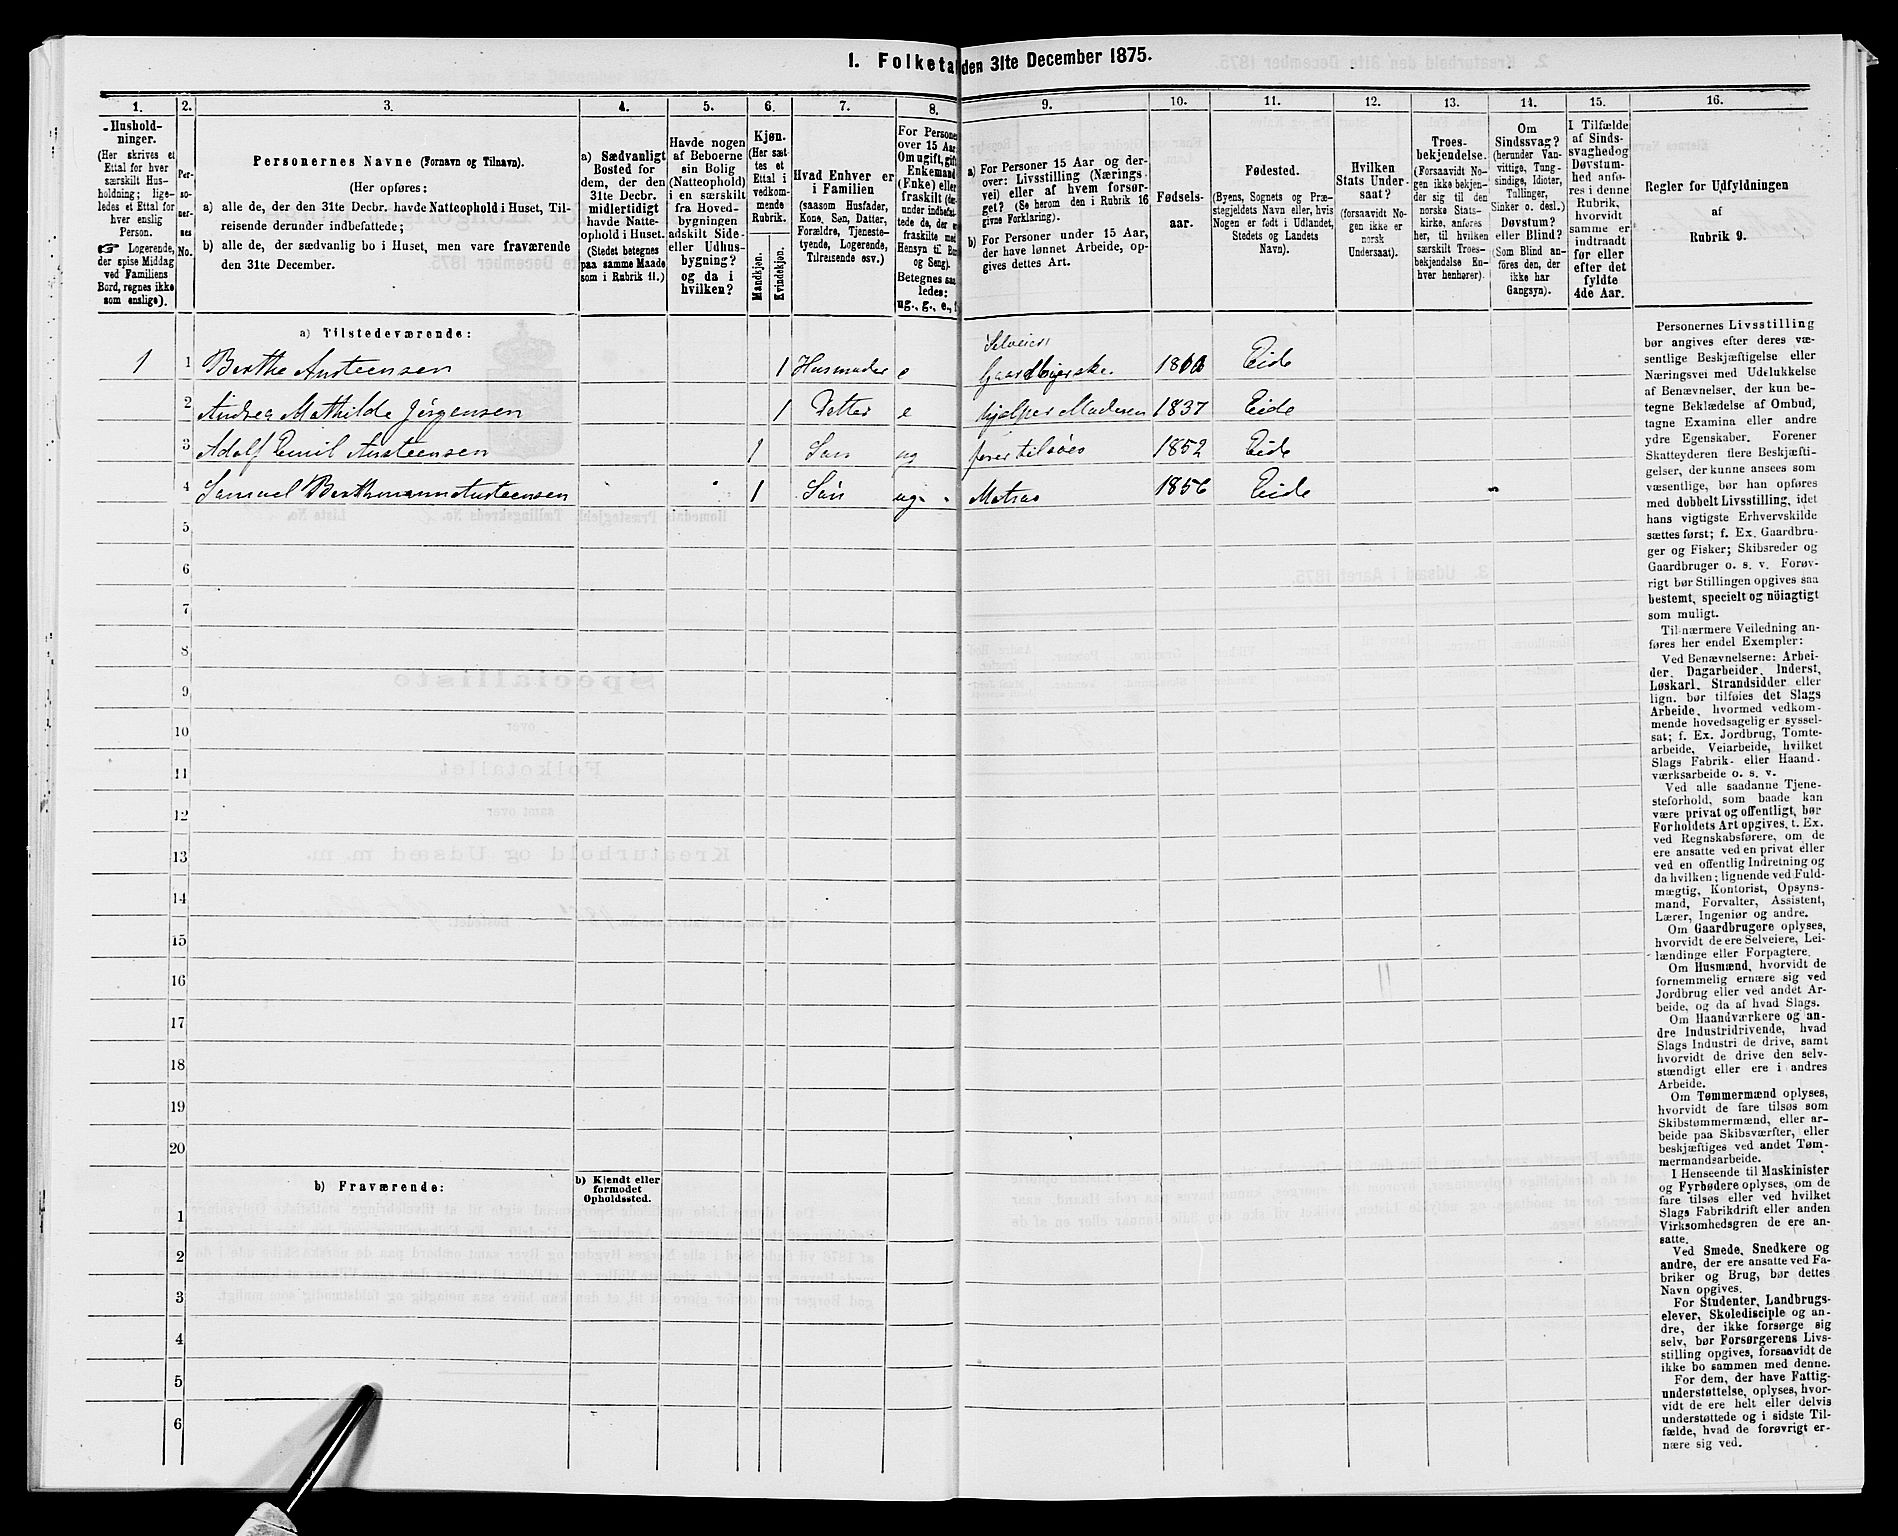 1. Folketal den 31te December 1875.
1. 2. 3. 4. 5. 6. 7. 8. 9. 10. 11. 12. 13. 14. 15. 16.
Hushold-
ninger.
(Her skrives et
Ettal for hver
særskilt Hus-
holdning; lige-
ledes et Ettal for
hver enslig
Person.
Logerende,
der spise Middag
ved Familiens
Bord, regnes ikke
som enslige).
Per-
so-
ner-
nes
No.
Personernes Navne (Fornavn og Tilnavn).
(Her opføres:
a) alle de, der den 31te Decbr. havde Natteophold i Huset, Til-
reisende derunder indbefattede;
b) alle de, der sædvanlig bo i Huset, men vare fraværende
den 31te December.
a) Sædvanligt
Bosted for
dem, der den
31te Decbr.
midlertidigt
havde Natte-
ophold i Huset.
(Stedet betegnes
paa samme Maade
som i Rubrik 11.)
Havde nogen
af Beboerne
sin Bolig
(Natteophold)
i en særskilt
fra Hoved-
bygningen
adskilt Side-
eller Udhus-
bygning?
og da i
hvilken?
Kjøn.
(Her sæt-
tes et
Ettal i
vedkom-
mende
Rubrik.
Mandkjøn.
Kvindekjøn.
Hvad Enhver er
i Familien
(saasom Husfader,
Kone, Søn, Datter,
Forældre, Tjeneste-
tyende, Logerende,
Tilreisende osv.)
For Personer
over 15 Aar:
Om ugift, gift,
Enkemand
(Enke) eller
fraskilt
Hensyn til Bord
og Seng).
Betegnes saa-
ledes:
ug., g., e., f.
a) For Personer 15 Aar og der-
over: Livsstilling (Nærings-
vei) eller af hvem forsør-
get? (Se herom den i Rubrik 16
givne Forklaring).
b) For Personer under 15 Aar,
der have lønnet Arbeide, op-
gives dettes Art.
Fødsels-
aar.
Fødested.
(Byens, Sognets og Præ-
stegjeldets Navn eller, hvis
Nogen er født i Udlandet,
Stedets og Landets
Navn).
Hvilken
Stats Under-
saat?
(forsaavidt No-
gen ikke er
norsk
Undersaat).
Troes-
bekjendelse.
(Forsaavidt No-
gen ikke bekjen-
der sig til den
norske Stats-
kirke, anføres
her, til hvilken
særskilt Troes-
bekjendelse En-
hver henhører).
Om
Sindssvag?
(herunder Van-
vittige, Tung-
sindige, Idioter,
Tullinger,
Sinker o. desl.)
Døvstum?
eller Blind?
(Som Blind an-
føres den, der
ikke har
Gangsyn).
I Tilfælde
af Sinds-
svaghed og
Døvstum-
hed anfø-
res i denne
Rubrik,
hvorvidt
samme er
indtraadt
før eller
efter det
fyldte
4de Aar.
Regler for Udfyldningen
af
Rubrik 9.
a) Tilstedeværende:
Selveier
1 1 Berthe Austeensen 1 Husmoder e Gaardbrugerske 18 Eide
2 Andrea Mathilde Jørgensen 1 Datter e hjelper Moderen 1837 Eide
3 Adolf Emil Austeensen 1 Søn ug farer tilsøes 1852 Eide
4 Samuel Berthmann Austeensen 1 Søn ug. Matros 1856 Eide
5
6
7
8
9
10
11
12
13
14
15
16
17
18
19
20
b) Fraværende:
b) Kjendt eller
formodet
Opholdssted.
1
2
3
4
5
6
Personernes Livsstilling
bør angives efter deres væ-
sentlige Beskjæftigelse eller
Næringsvei med Udelukkelse
af Benævnelser, der kun be-
tegne Beklædelse af Ombud,
tagne Examina eller andre
ydre Egenskaber. Forener
Skatteyderen flere Beskjæfti-
gelser, der kunne ansees som
væsentlige, bør han opføres
med dobbelt Livsstilling, idet
hans vigtigste Erhvervskilde
sættes først; f. Ex. Gaardbru-
ger og Fisker; Skibsreder og
Gaardbruger o. s. v. Forøv-
rigt bør Stillingen opgives saa
bestemt, specielt og nöiagtigt
som muligt.
Til nærmere Veiledning an-
føres her endel Exempler:
Ved Benævnelserne: Arbei-
der, Dagarbeider, Inderst,
Løskarl, Strandsidder eller
lign. bør tilføies det Slags
Arbeide, hvormed vedkom-
mende hovedsagelig er syssel-
sat; f. Ex. Jordbrug, Tomte-
arbeide, Veiarbeide, hvilket
Slags Fabrik- eller Haand-
værksarbeide o. s. v.
Ved alle saadanne Tjene-
steforhold, som baade kan
være privat og offentligt, bør
Forholdets Art opgives, t. Ex.
ved Regnskabsførere, om de
ere ansatte ved en privat eller
ved en offentlig Indretning og
da hvilken; lignende ved Fuld-
mægtig, Kontorist, Opsyns-
mand, Forvalter, Assistent,
Lærer, Ingeniør og andre.
Om Gaardbrugere oplyses,
hvorvidt de ere Selveiere, Lei-
lændinge eller Forpagtere.
Om Husmænd, hvorvidt de
fornemmelig ernære sig ved
Jordbrug eller ved andet Ar-
beide, og da af hvad Slags.
Om Haandværkere og an-
dre Industridrivende, hvad
Slags Industri de drive, samt
hvorvidt de drive den selv-
stændigt eller ere i andres
Arbeide.
Om Tømmermænd oplyses,
hvorvidt de fare tilsøs som
Skibstømmermænd, eller ar-
beide paa Skibsværfter, eller
beskjæftiges ved andet Tøm-
mermandsarbeide.
I Henseende til Maskinister
og Fyrbødere oplyses, om de
fare tilsøs eller ved hvilket
Slags Fabrikdrift eller anden
Virksomhedsgren de ere an-
satte.
Ved Smede, Snedkere og
andre, der ere ansatte ved Fa-
briker og Brug, bør dettes
Navn opgives.
For Studenter, Landbrugs-
elever, Skoledisciple og an-
dre, der ikke forsørge sig
selv, bør Forsørgerens Livs-
stilling opgives, forsaavidt de
ikke bo sammen med denne.
For dem, der have Fattig-
understøttelse, oplyses, hvor-
vidt de ere helt eller delvis
understøttede og i sidste Til-
fælde, hvad de forøvrigt er-
nære sig ved.